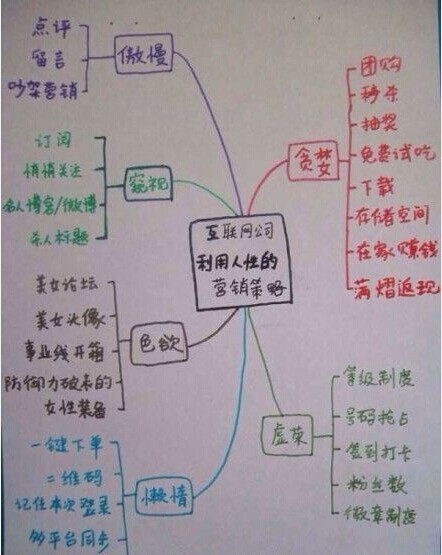 点评
留言
吵架营销
傲慢
订阅
悄悄关注
名人博客/微博
杀人标题
窥视
美女论坛
美女头像
事业线开箱
防御力破表的
女性装备
色欲
一键下单
二维码
记住本次登录
多平台同步
懒惰
互联网公司
利用人性的
营销策略
贪婪
团购
秒杀
抽奖
免费试吃
下载
存储空间
在家赚钱
满熠返现
虚荣
等级制度
号码抢占
签到打卡
粉丝数
徽章制度